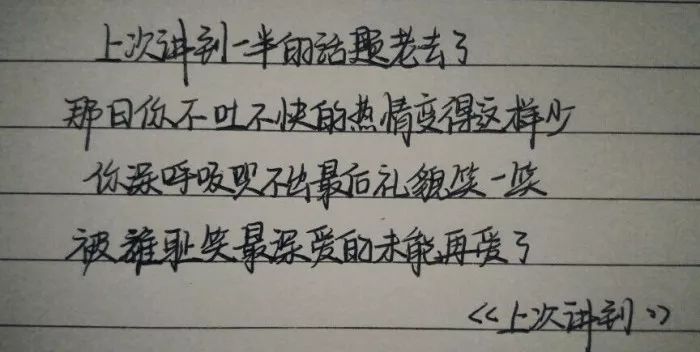 上次讲到一半的话题老去了
那日你不吐不快的热情变得这样少
你深呼吸哭不出最后礼貌笑一笑
被谁耻笑最深爱的未能再爱了
<<上次讲到>>